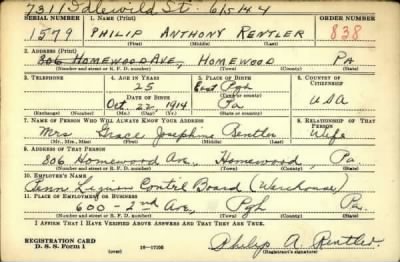 7311 Idlewild St. 6/5/44
SERIAL NUMBER 1. NAME (Print) ORDER NUMBER
1579 PHILIP ANTHONY RENTLER 838
(First) (Middle) (Last)
2. ADDRESS (Print)
806 HOMEWOOD AVE, HOMEWOOD PA
(Number and street or R. F. D. number) (Town) (County) (State)
3. TELEPHONE 4. AGE IN YEARS 5. PLACE OF BIRTH 6. COUNTRY OF CITIZENSHIP
25 East Pgh
DATE OF BIRTH (Town or county)
Oct. 22, 1914 Pa USA
(Exchange) (Number) (Mo.) (Day) (Yr.) (State or country)
7. NAME OF PERSON WHO WILL ALWAYS KNOW YOUR ADDRESS 8. RELATIONSHIP OF THAT PERSON
Mrs Grace Josephine Rentler Wife
(Mr., Mrs., Miss) (First) (Middle) (Last)
9. ADDRESS OF THAT PERSON
806 Homewood Ave, Homewood, Pa
(Number and street or R. F. D. number) (Town) (County) (State)
10. EMPLOYER'S NAME
Penn Liquor Control Board (Warehouse)
11. PLACE OF EMPLOYMENT OR BUSINESS
600 - 2nd Ave, Pgh Pa.
(Number and street or R. F. D. number) (Town) (County) (State)
I AFFIRM THAT I HAVE VERIFIED ABOVE ANSWERS AND THAT THEY ARE TRUE.
REGISTRATION CARD
D. S. S. Form 1 (over) 16-17105 Philip A. Rentler
(Registrant's signature)